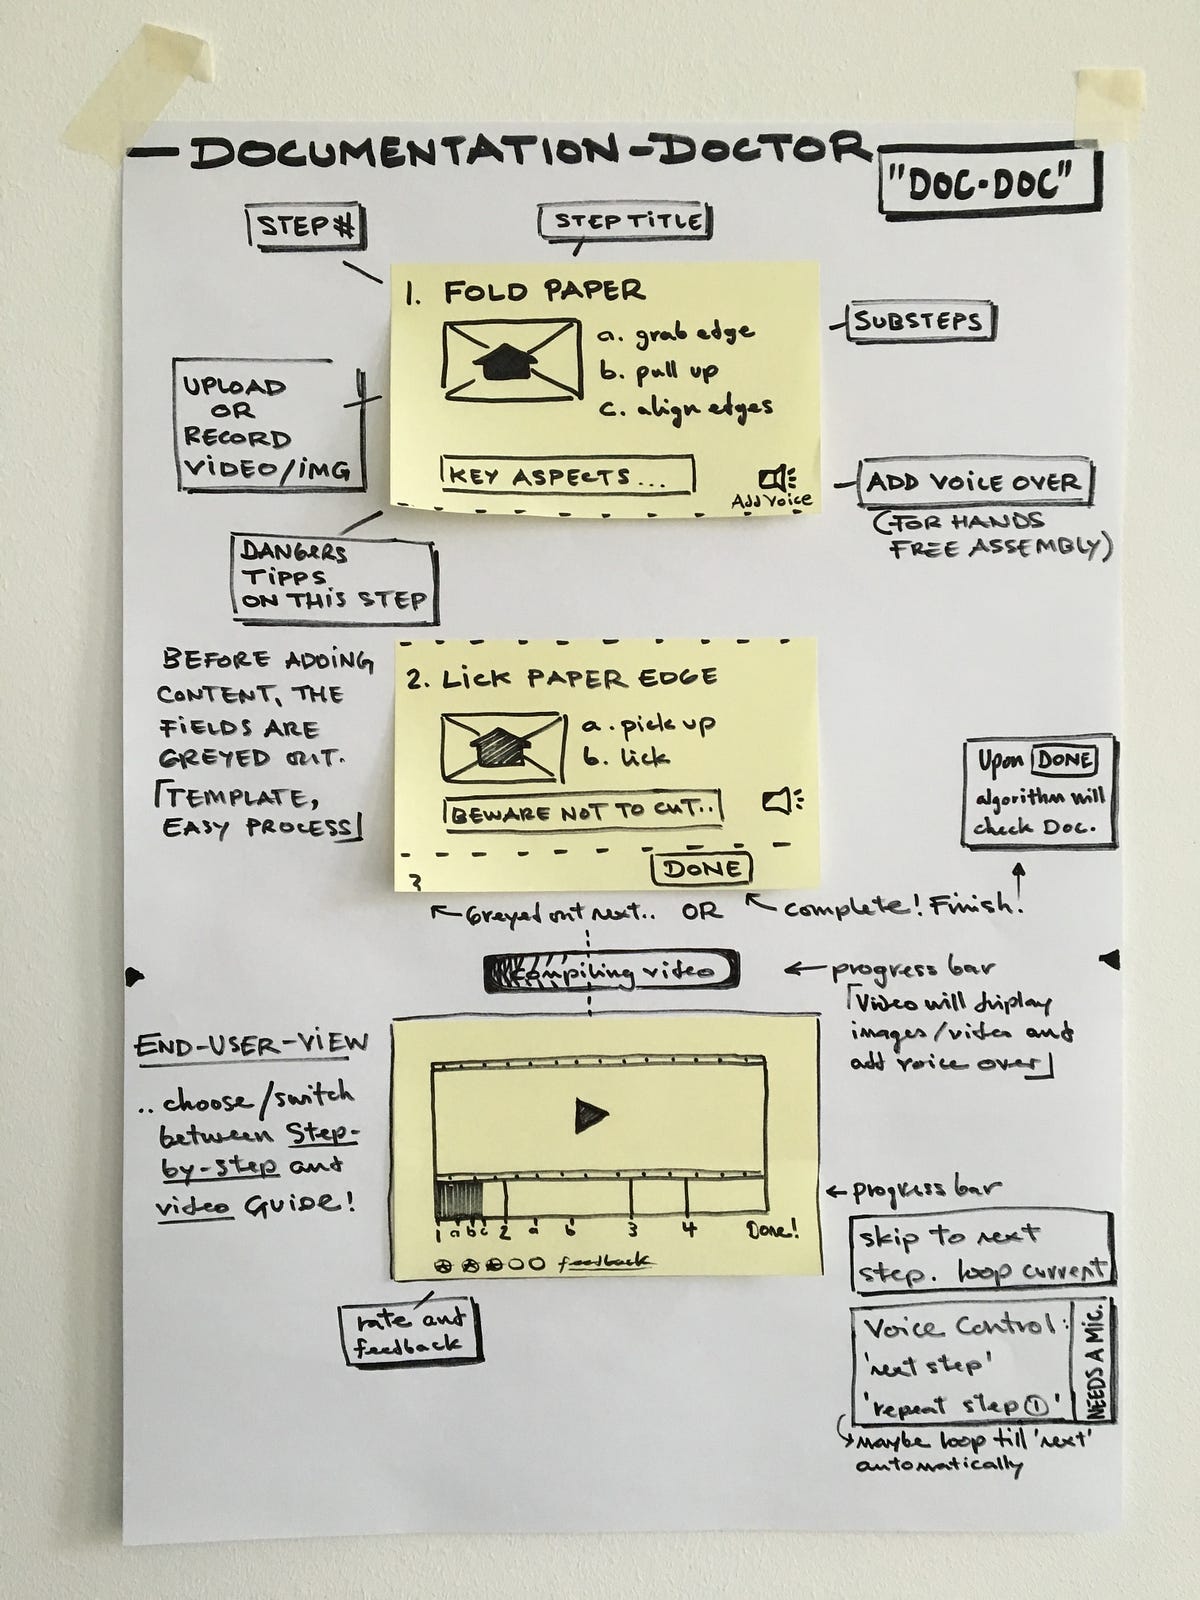 DOCUMENTATION-DOCTOR
"DOC-DOC"
STEP #
STEP TITLE
1. FOLD PAPER
a. grab edge
b. pull up
c. align edges
KEY ASPECTS...
Add Voice
SUBSTEPS
UPLOAD
OR
RECORD
VIDEO/IMG
ADD VOICE OVER
(FOR HANDS
FREE ASSEMBLY)
DANGERS
TIPPS
ON THIS STEP
BEFORE ADDING
CONTENT, THE
FIELDS ARE
GREYED OUT.
[TEMPLATE,
EASY PROCESS]
2. LICK PAPER EDGE
a. pick up
b. lick
BEWARE NOT TO CUT..
DONE
3
Upon DONE
algorithm will
check Doc.
Greyed out next.. OR complete! Finish!
compiling video
progress bar
[Video will display
images/video and
add voice over]
END-USER-VIEW
.. choose/switch
between Step-
by-step and
video GUIDE!
1 a b c 2 a b 3 4 Done!
feedback
rate and
feedback
progress bar
skip to next
step. loop current
Voice Control:
'next step'
'repeat step 1'
NEEDS A MIC.
maybe loop till 'next'
automatically